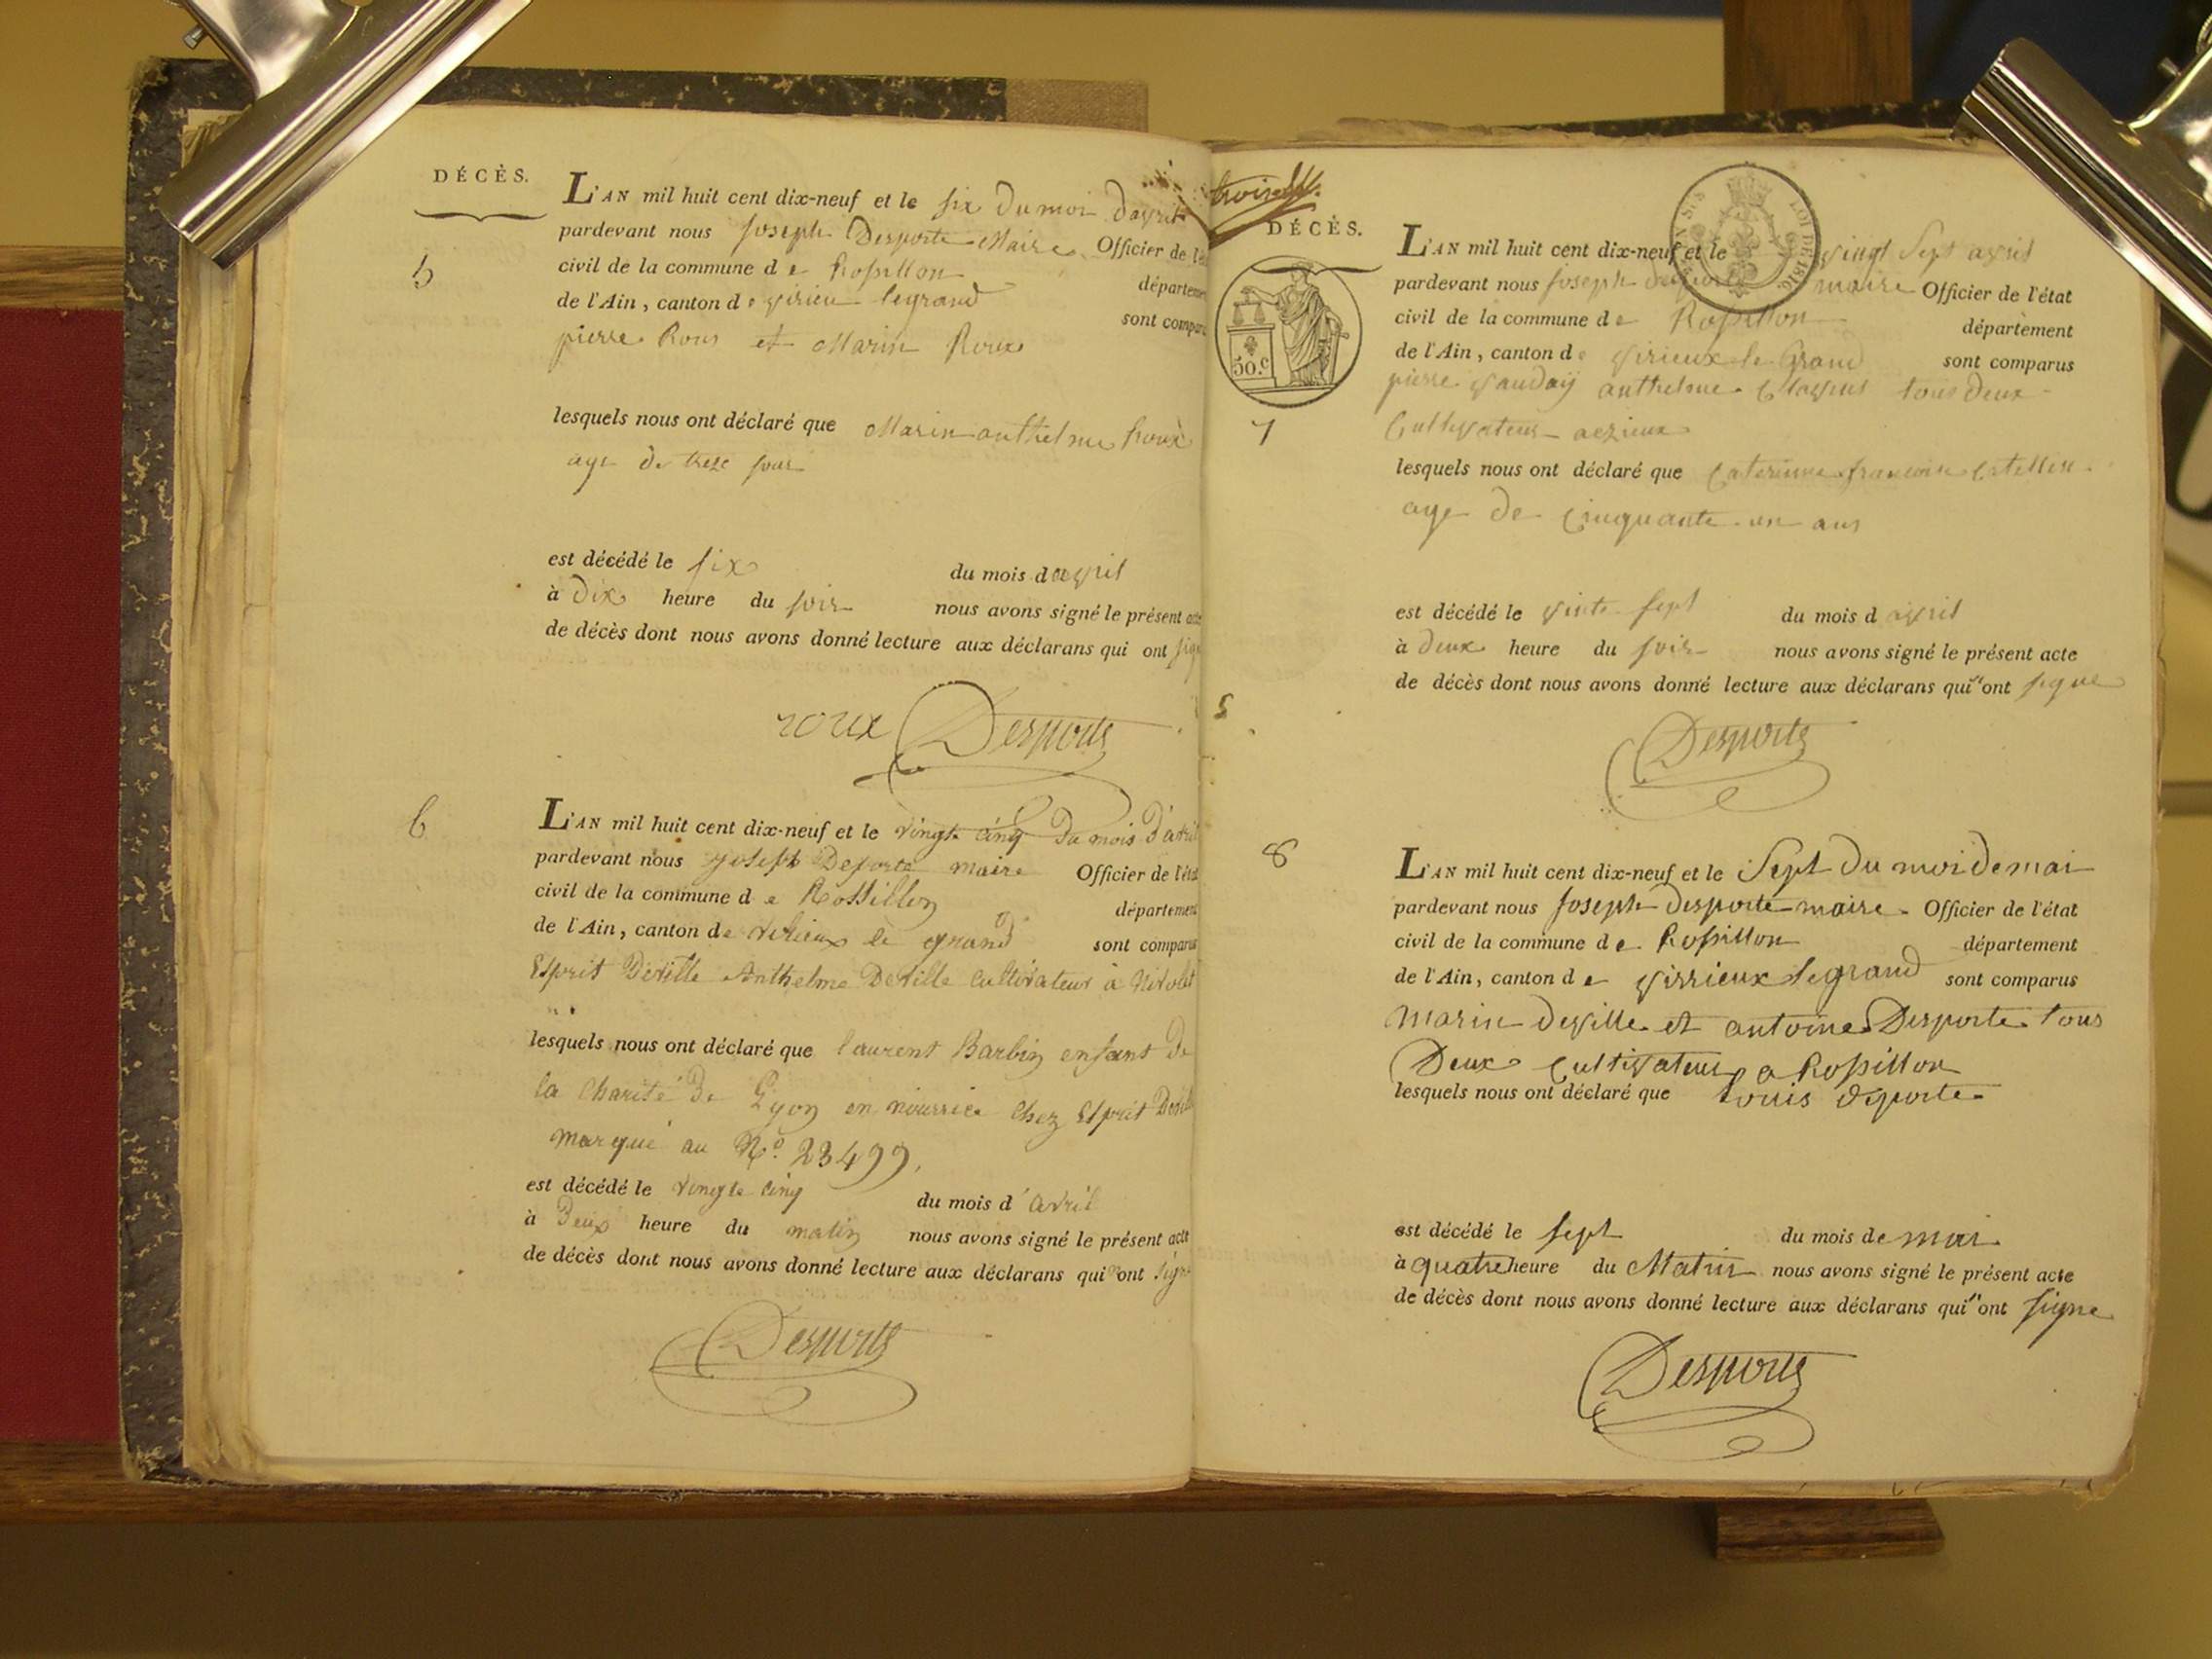 DÉCÈS.
5
L'AN mil huit cent dix-neuf et le six du moi davril
pardevant nous Joseph Desporte Maire Officier de l'é
civil de la commune de Rossillon départemen
de l'Ain, canton de virieu legrand sont compar
pierre Roux et Marin Roux
lesquels nous ont déclaré que Marin anthelme Roux
age de treze jour
est décédé le six du mois d avril
à dix heure du soir nous avons signé le présent acte
de décès dont nous avons donné lecture aux déclarans qui ont sig
roux Desporte
6
L'AN mil huit cent dix-neuf et le vingt cinq du mois d'avril
pardevant nous joseph Deporte maire Officier de l'état
civil de la commune de Rossillon département
de l'Ain, canton de virieux le grand sont comparus
Esprit Deville Anthelme Deville cultivateur à Nivolet
lesquels nous ont déclaré que laurent Barbin enfant de
la Charité de Lyon en nourrice chez Esprit Deville
marqué au N.º 23499.
est décédé le vingte cinq du mois d'avril
à Deux heure du matin nous avons signé le présent acte
de décès dont nous avons donné lecture aux déclarans qui n'ont signé
Desporte
DÉCÈS.
50.c
7
L'AN mil huit cent dix-neuf et le vingt sept avril
pardevant nous joseph desporte maire Officier de l'état
civil de la commune de Rossillon département
de l'Ain, canton de virieux le Grand sont comparus
pierre vauday anthelme tous deux
Cultivateur
lesquels nous ont déclaré que Caterinne francoise
age de cinquante un ans
est décédé le vinte sept du mois d avril
à deux heure du soir nous avons signé le présent acte
de décès dont nous avons donné lecture aux déclarans qui n'ont signe
Desporte
5
8
L'AN mil huit cent dix-neuf et le Sept du moi de mai
pardevant nous Joseph desporte maire Officier de l'état
civil de la commune de Rossillon département
de l'Ain, canton de virrieux legrand sont comparus
marin deville et antoine Desporte tous
Deux cultivateur a Rossillon
lesquels nous ont déclaré que louis deporte
est décédé le sept du mois de mai
à quatre heure du Matin nous avons signé le présent acte
de décès dont nous avons donné lecture aux déclarans qui n'ont signe
Desporte